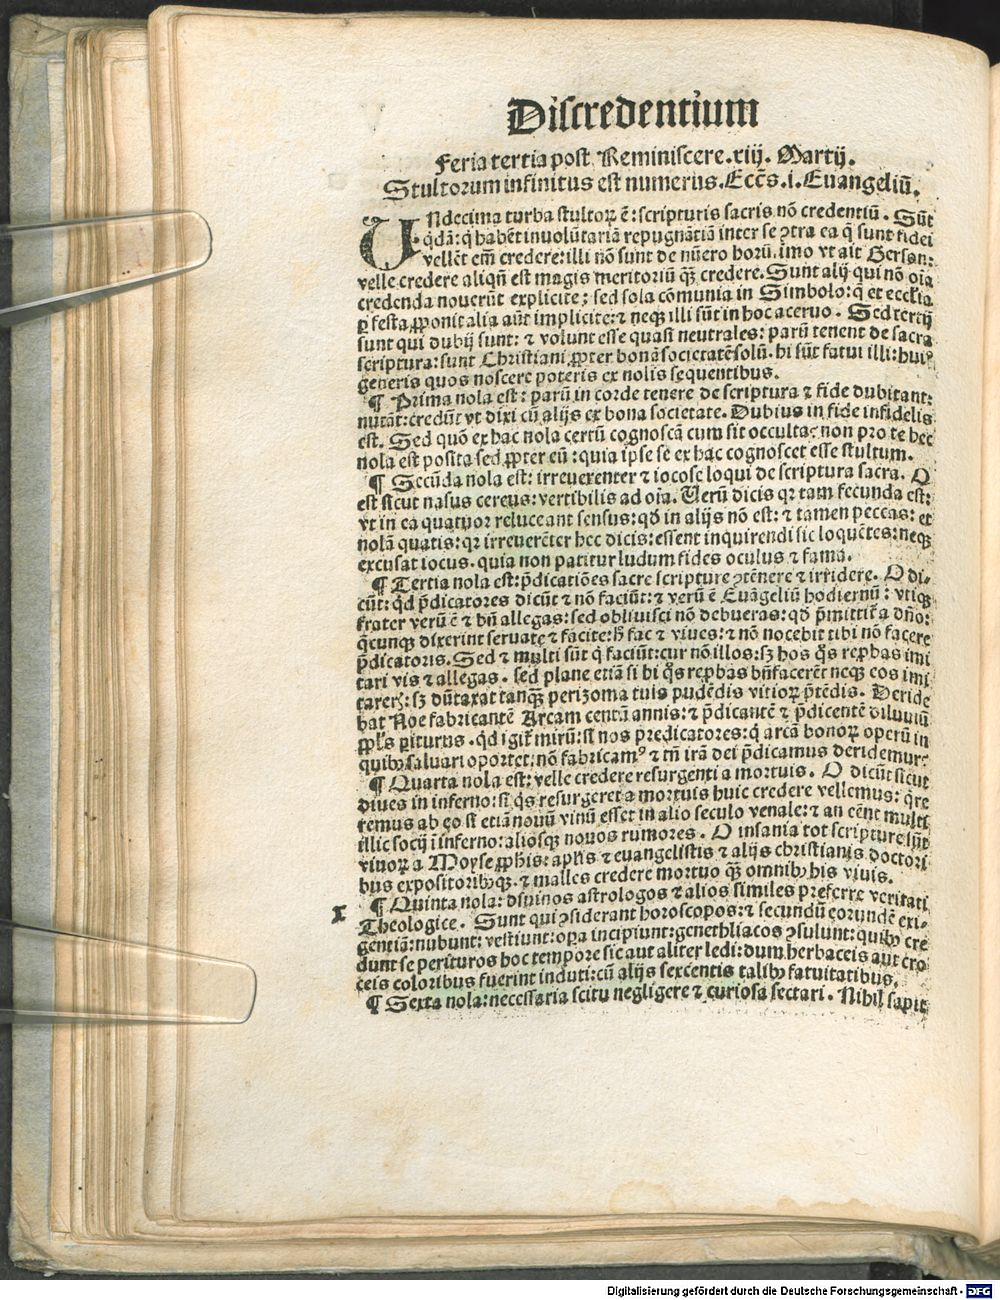 Discredentium
Feria tertia post Reminiscere.xiij. Martij.
Stultorum infinitus est numerus.Ecc̄s.i.Euangeliū.
UNdecima turba stultoꝝ ē:scripturis sacris nō credentiū. Sūt
q̇dā:q̇ habēt inuolūtariā repugnātiā inter se ꝯtra ea q̄ sunt fidei
vellēt em̄ credere:illi nō sunt de nūero horū.imo vt ait Gerson:
velle credere aliqn̄ est magis meritoriū qꝫ credere.Sunt alij qui nō oīa
credenda nouerūt explicite; sed sola cōmunia in Simbolo:q̄ et ecclīa
ꝑ festa ꝓponit alia aūt implicite:⁊ neqꝫ illi sūt in hoc aceruo. Sed tertij
sunt qui dubij sunt: ⁊ volunt esse quasi neutrales: parū tenent de sacra
scriptura:sunt Christiani ꝓpter bonā societatē solū. hi sūt fatui illi:huiꝰ
generis quos noscere poteris ex nolis sequentibus.
¶ Prima nola est: parū in corde tenere de scriptura ⁊ fide dubitant:
nutāt:credūt vt dixi cū alijs ex bona societate. Dubius in fide infidelis
est. Sed quō ex hac nola certū cognoscā cum sit occulta: non pro te hec
nola est posita sed ꝓpter eū:quia ipse se ex hac cognoscet esse stultum.
¶ Secūda nola est: irreuerenter ⁊ iocose loqui de scriptura sacra. O
est sicut nasus cereus:vertibilis ad oīa. Verū dicis qꝛ tam fecunda est:
vt in ea quatuor reluceant sensus:qd̄ in alijs nō est:⁊ tamen peccas: et
nolā quatis:qꝛ irreuerēter hec dicis:essent inquirendi sic loquētes:neqꝫ
excusat iocus.quia non patitur ludum fides oculus ⁊ fama.
¶ Tertia nola est:p̄dicatiōes sacre scripture ꝯtēnere ⁊ irridere. O di-
cūt:q̇d p̄dicatores dicūt ⁊ nō faciūt:⁊ verū ē Euāgeliū hodiernū: vtiqꝫ
frater verū ē ⁊ bn̄ allegas:sed obliuisci nō debueras:qd̄ p̄mittit̄a dn̄o:
q̄cunqꝫ dixerint seruate ⁊ facite:h̄ fac ⁊ viues:⁊ nō nocebit tibi nō facere
p̄dicatoris.Sed ⁊ multi sūt q̇ faciūt:cur nō illos:sꝫ hos q̄s reꝓbas imi
tari vis ⁊ allegas. sed plane etiā si hi q̄s reꝓbas bn̄facerēt neqꝫ eos imi
tarerꝭ:sꝫ dūtaxat tanqꝫ perizoma tuis pudēdis vitioꝝ p̄tēdis. Deride
bat Noe fabricantē Arcam centū annis:⁊ p̄dicantē ⁊ p̄dicentē diluuiū
ppl̄s ꝑiturus.q̇d igit̄ mirū:si nos predicatores:q̇ arcā bonoꝝ operū in
quibꝫ saluari oportet:nō fabricamꝰ ⁊ tn̄ irā dei p̄dicamus deridemur:
¶ Quarta nola est:velle credere resurgenti a mortuis. O dicūt sicut
diues in inferno:si q̇s resurgeret a mortuis huic credere vellemus: q̄re
remus ab eo si etiā nouū vinū esset in alio seculo venale:⁊ an cēnt multi
illic socij ī inferno:aliosqꝫ nouos rumores. O insania tot scripture sūt
viuoꝝ a Moyse ꝓphis:apl̄is ⁊ euangelistis ⁊ alijs christianis doctori
bus expositoribꝫqꝫ.⁊ malles credere mortuo qꝫ omnibꝫ his viuis.
x ¶ Quinta nola: diuinos astrologos ⁊ alios similes preferre veritati
Theologice. Sunt qui ꝯsiderant horoscopos:⁊ secundū eorundē exi-
gentiā:nubunt:vestiunt:opa incipiunt:genethliacos ꝯsulunt:quibꝫ cre
dunt se perituros hoc tempore sic aut aliter ledi:dum herbaceis aut cro
ceis coloribus fuerint induti:cū alijs sexcentis talibꝫ fatuitatibus.
¶ Sexta nola:necessaria scitu negligere ⁊ curiosa sectari. Nihil sapit
Digitalisierung gefördert durch die Deutsche Forschungsgemeinschaft - DFG